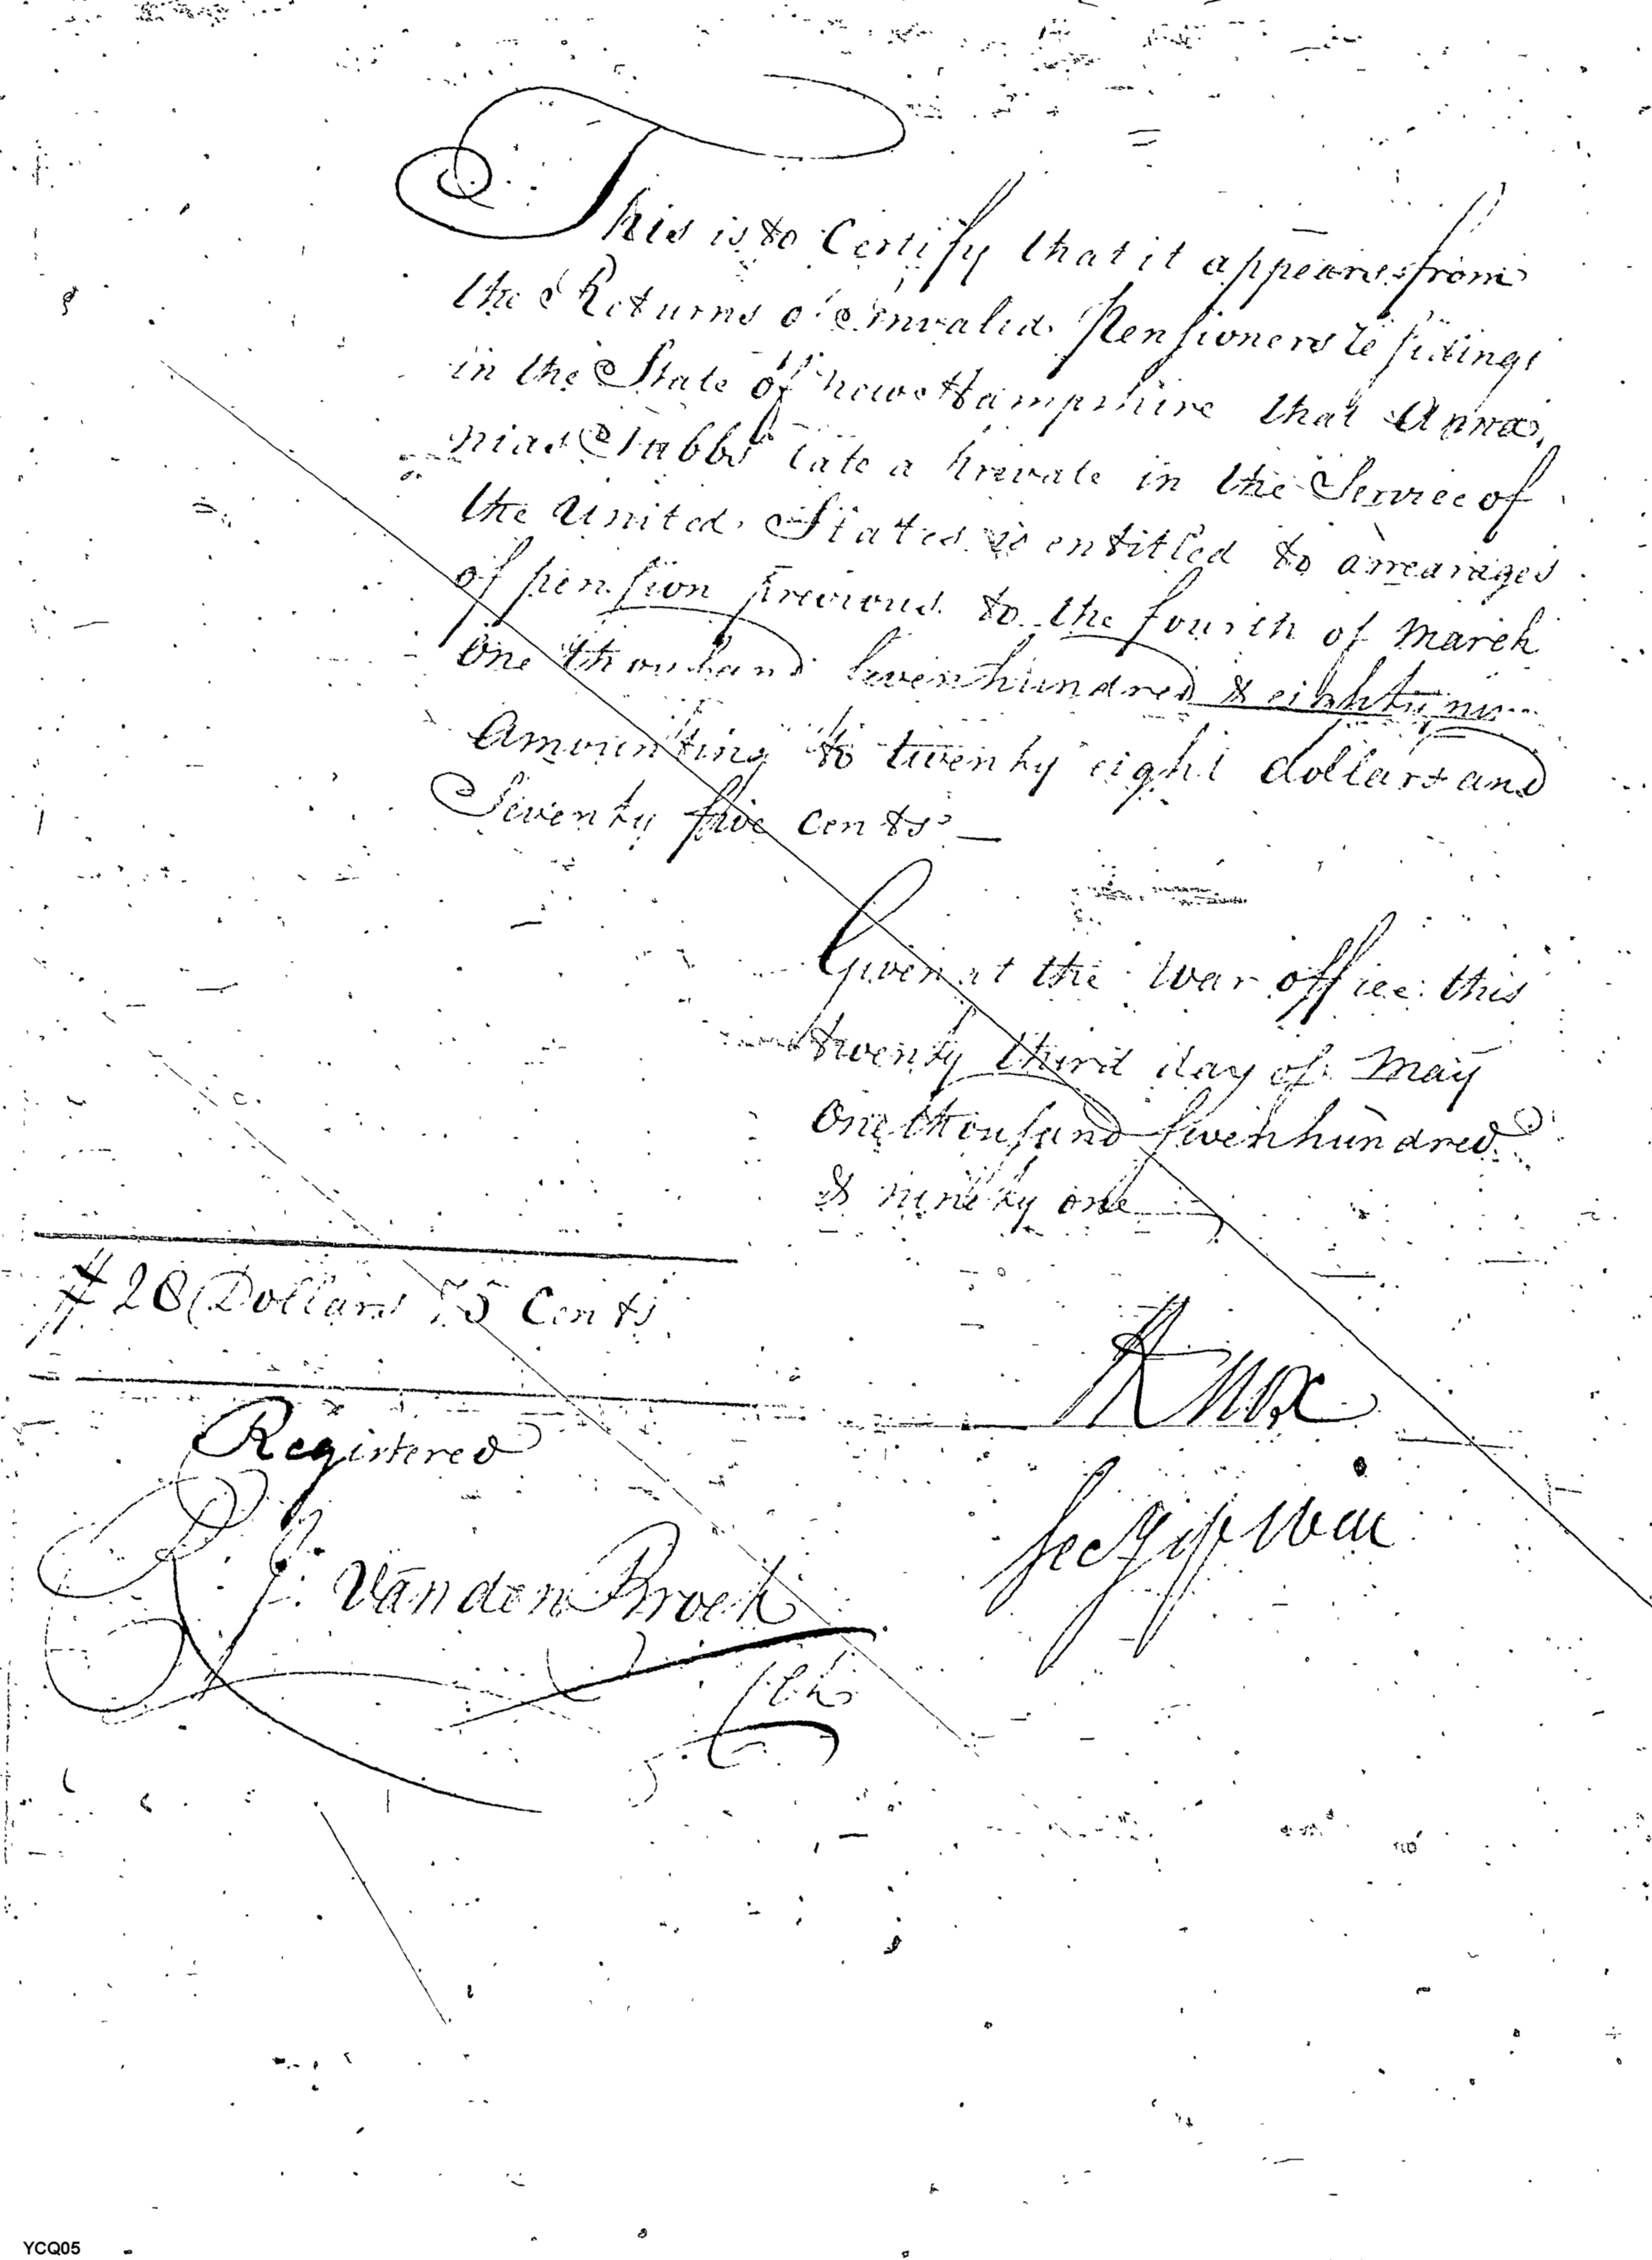 This is to Certify that it appears from
the Returns of Invalid Pensioners residing
in the State of New Hampshire that Anna
nias Tubbs late a Private in the Service of
the United States is entitled to arrearages
of pension previous to the fourth of March
One thousand Sevenhundred & eighty
Amounting to twenty eight dollars and
Seventy five cents —
Given at the War office this
twenty third day of May
One thousand Sevenhundred
& ninety one
28 Dollars 75 Cents
Registered
HKnox
Secy of War
Vanden Broek
YCQ05